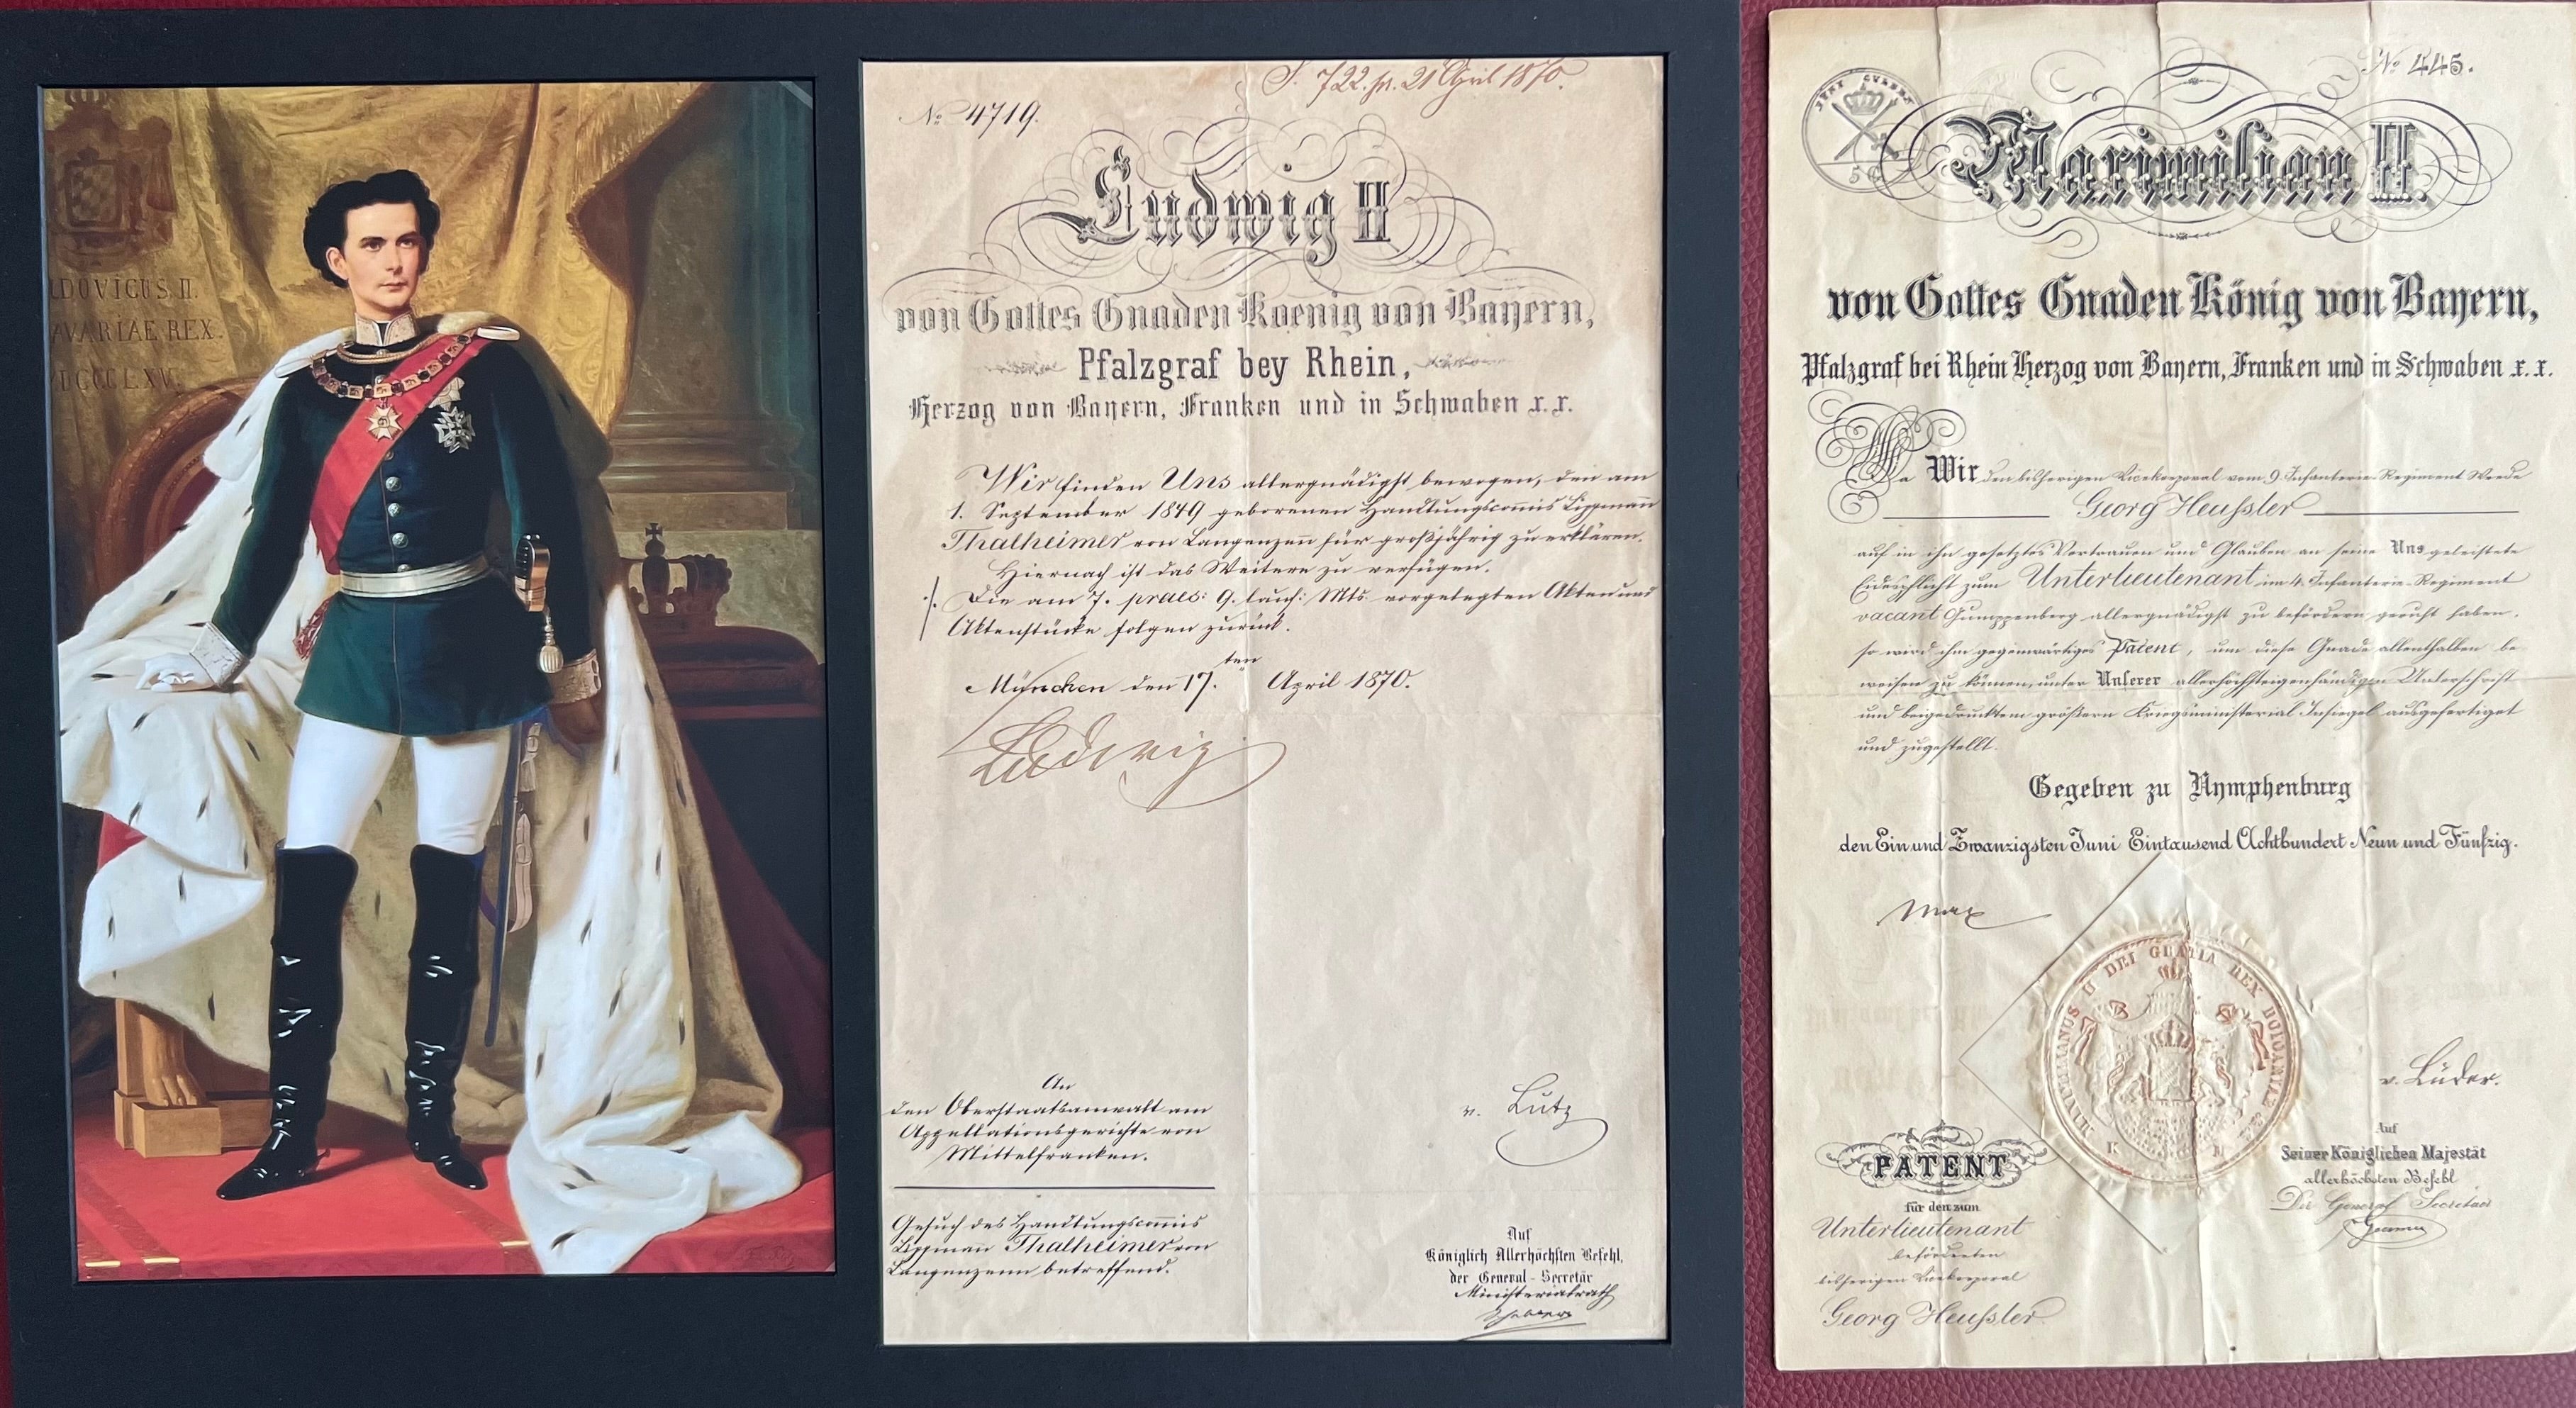 DOVICUS II.
AVARIAE REX.
DCCCLXV.
S. 722. pr. 21 April 1870.
No 4719.
Ludwig II
von Gottes Gnaden Koenig von Bayern,
Pfalzgraf bey Rhein,
Herzog von Bayern, Franken und in Schwaben x. x.
Wir finden Uns allergnädigst bewogen, den am
1. September 1849 geborenen Handlungscom̅is Lippman̅
Thalheimer von Langenzen̅ für großjährig zu erklären.
Hiernach ist das Weitere zu verfügen.
./. Die am 7. praes: 9. lauf: Mts. vorgelegten Akten und
Aktenstücke folgen zurück.
München den 17.ten April 1870.
Ludwig
An
den Oberstaatsanwalt am
Appellationsgerichte von
Mittelfranken.
v. Lutz
Gesuch des Handlungscom̅is
Lippman̅ Thalheimer von
Langenzenn betreffend.
Auf
Königlich Allerhöchsten Befehl,
der General-Secretär
Ministerialrath
No 445.
50
Maximilian II.
von Gottes Gnaden König von Bayern,
Pfalzgraf bei Rhein Herzog von Bayern, Franken und in Schwaben x. x.
Da Wir den bisherigen Vicekorporal vom 9. Infanterie-Regiment Wrede
Georg Heußler
auf in ihn gesetztes Vertrauen und Glauben an seine Uns geleistete
Eidespflicht zum Unterlieutenant im 4. Infanterie-Regiment
vacant Gumppenberg allergnädigst zu befördern geruht haben,
so wird ihm gegenwärtiges Patent, um diese Gnade allenthalben be-
weisen zu können, unter Unserer allerhöchsteigenhändigen Unterschrift
und beigedrucktem größern Kriegsministerial Insiegel ausgefertiget
und zugestellt.
Gegeben zu Nymphenburg
den Ein und Zwanzigsten Juni Eintausend Achthundert Neun und Fünfzig.
Max
MAXIMILIANUS II DEI GRATIA REX BOIOARIAE
K M
v. Lüder.
Auf
Seiner Königlichen Majestät
allerhöchsten Befehl
Der General Secretär
PATENT
für den zum
Unterlieutenant
beförderten
bisherigen Vicekorporal
Georg Heußler